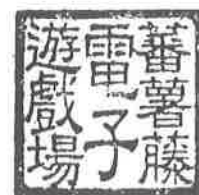 蕃薯藤
電子
遊戲場